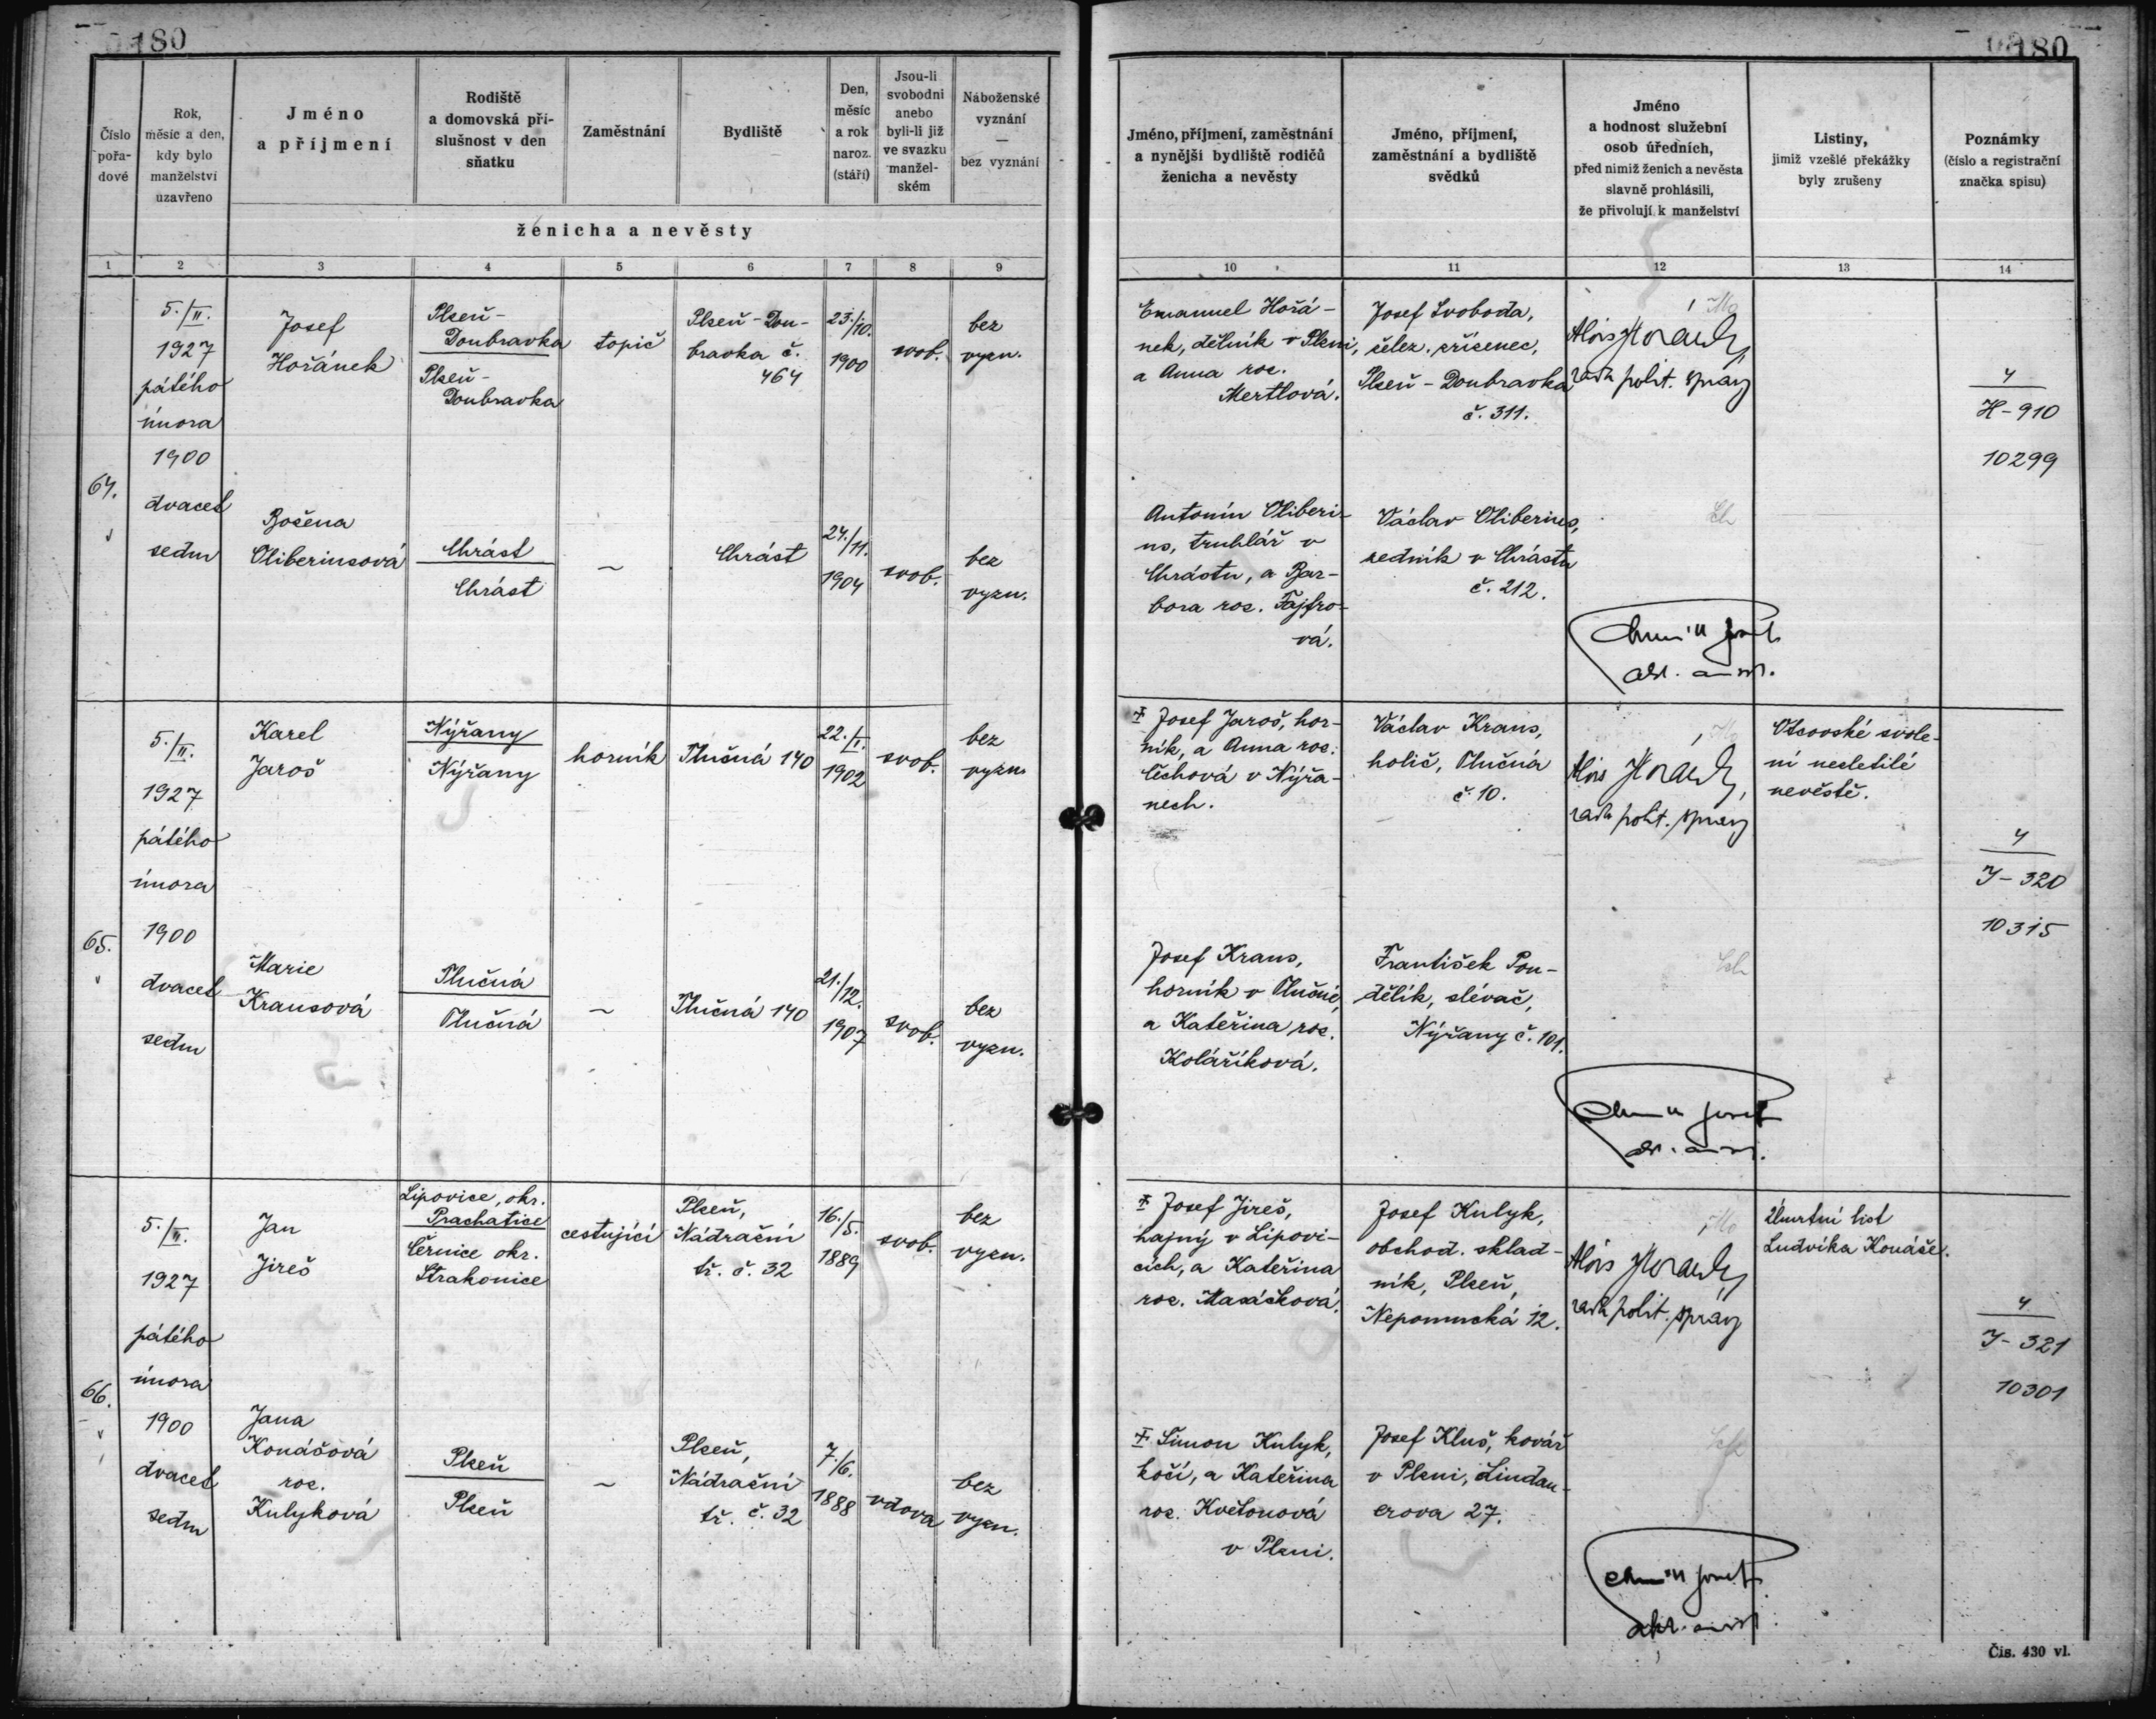 180
180
Číslo pořa-dové
Rok, měsíc a den, kdy bylo manželství uzavřeno
Jméno a příjmení
Rodiště a domovská pří-slušnost v den sňatku
Zaměstnání
Bydliště
Den, měsíc a rok naroz. (stáří)
Jsou-li svobodni anebo byli-li již ve svazku manžel-ském
Náboženské vyznání — bez vyznání
ženicha a nevěsty
Jméno, příjmení, zaměstnání a nynější bydliště rodičů ženicha a nevěsty
Jméno, příjmení, zaměstnání a bydliště svědků
Jméno a hodnost služební osob úředních, před nimiž ženich a nevěsta slavně prohlásili, že přivolují k manželství
Listiny, jimiž vzešlé překážky byly zrušeny
Poznámky (číslo a registrační značka spisu)
1 2 3 4 5 6 7 8 9 10 11 12 13 14
64.
5./II.
1927
pátého
února
1900
dvacet
sedm
Josef
Hořánek
Plzeň-
Doubravka
Plzeň-
Doubravka
topič
Plzeň-Dou-
bravka č.
464
23./10.
1900
svob.
bez
vyzn.
Emanuel Hořá-
nek, dělník v Plzni,
a Anna roz.
Mertlová.
Josef Svoboda,
želez. zřízenec,
Plzeň-Doubravka
č. 311.
Alois
rada polit. správy
4
H-910
10299
Božena
Oliberiusová
Chrást
Chrást
~
Chrást
24./11.
1904
svob.
bez
vyzn.
Antonín Oliberi-
us, truhlář v
Chrástu, a Bar-
bora roz. Fajfro-
vá.
Václav Oliberius,
zedník v Chrástu
č. 212.
65.
5./II.
1927
pátého
února
1900
dvacet
sedm
Karel
Jaroš
Nýřany
Nýřany
horník
Tlučná 140
22./I.
1902
svob.
bez
vyzn.
Josef Jaroš, hor-
ník, a Anna roz.
Čechová v Nýřa-
nech.
Václav Kraus,
holič, Tlučná
č. 10.
Alois
rada polit. správy
Otcovské svole-
ní nezletilé
nevěstě.
4
J-320
10315
Marie
Krausová
Tlučná
Tlučná
~
Tlučná 140
21./12.
1907
svob.
bez
vyzn.
Josef Kraus,
horník v Tlučné,
a Kateřina roz.
Koláříková.
František Pon-
dělík, slévač,
Nýřany č. 101.
66.
5./II.
1927
pátého
února
1900
dvacet
sedm
Jan
Jireš
Lipovice, okr.
Prachatice
Černice okr.
Strakonice
cestující
Plzeň,
Nádražní
tř. č. 32
16./5.
1889
svob.
bez
vyzn.
Josef Jireš,
hajný v Lipovi-
cích, a Kateřina
roz. Masáčková.
Josef Kulyk,
obchod. sklad-
ník, Plzeň,
Nepomucká 12.
Alois
rada polit. správy
Úmrtní list
Ludvíka Konáše.
4
J-321
10301
Jana
Konášová
roz.
Kulyková
Plzeň
Plzeň
~
Plzeň,
Nádražní
tř. č. 32
7./6.
1888
vdova
bez
vyzn.
Šimon Kulyk,
kočí, a Kateřina
roz. Květonová
v Plzni.
Josef Kluš, kovář
v Plzni, Lindau-
erova 27.
Čís. 430 vl.